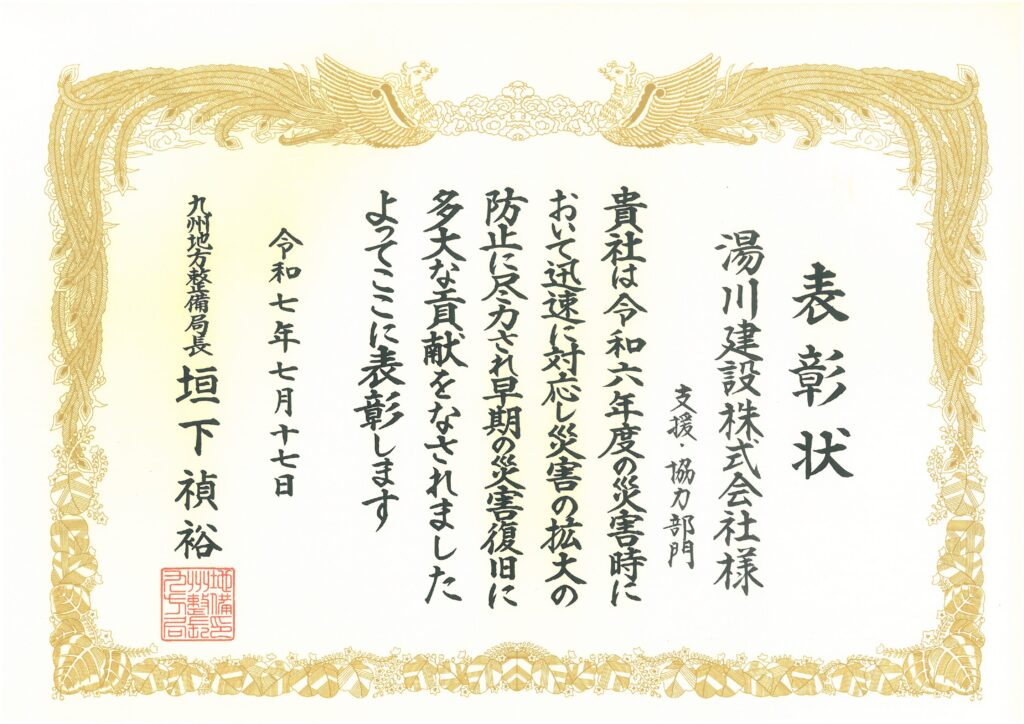 表彰状
湯川建設株式会社様
支援・協力部門
貴社は令和六年度の災害時に
おいて迅速に対応し災害の拡大の
防止に尽力され早期の災害復旧に
多大な貢献をなされました
よってここに表彰します
令和七年七月十七日
九州地方整備局長 垣下禎裕